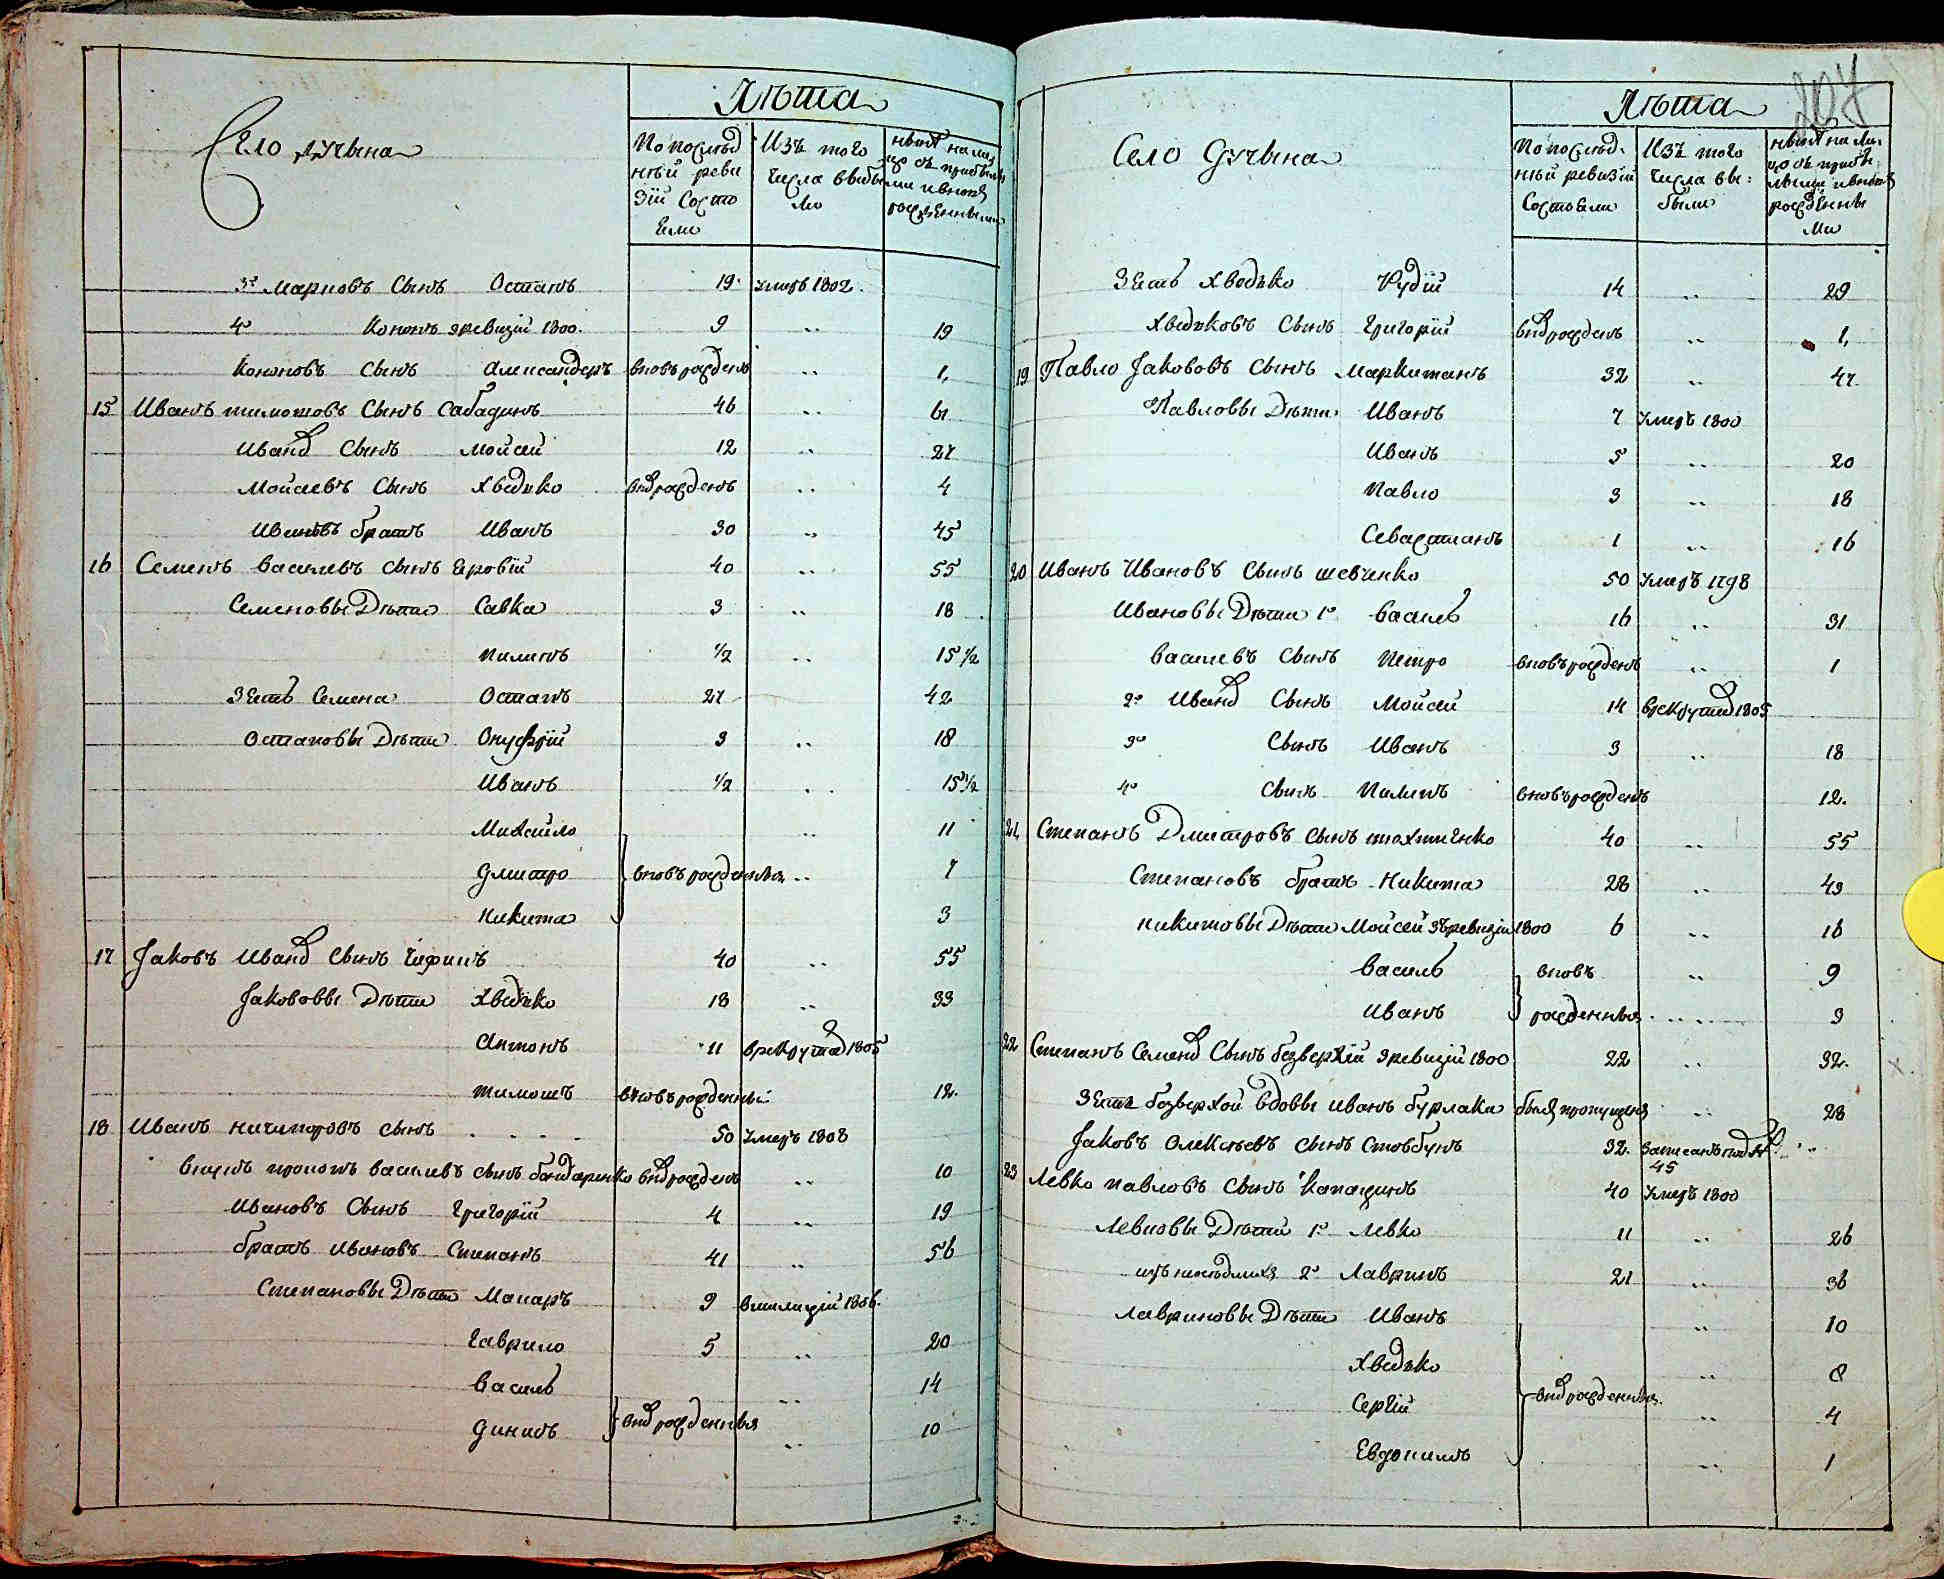 Село Дучына
Лѣта
По послѣд
ней реви
зіи Состо
яли
Изъ того
числа выбы
ло
нынѣ на ли
цо съ прибы
лыми и вновь
рожденными
3й Марковъ Сынъ Остапъ 19 умеръ 1802
4й Кононъ з ревизіи 1800. 9 " 19
Кононовъ Сынъ Александеръ вновь рожденъ " 1
15 Иванъ тимошовъ Сынъ Сабадинъ 46 " 61
Иванов Сынъ Мойсей 12 " 27
Мойсеевъ Сынъ Хведько внов рожденъ " 4
Ивановъ братъ Иванъ 30 " 45
16 Семенъ василевъ сынъ Яровій 40 " 55
Семеновы Дѣти Савка 3 " 18
Пилипъ 1/2 " 15 1/2
Зять Семена Остапъ 27 42
Остаповы Дѣти Онуфрій 3 " 18
Иванъ 1/2 " 15 1/2
Михайло " 11
Дмитро вновь рожденныя " 7
Никита 3
17 Яковъ Иванов Сынъ 40 " 55
Якововы Дѣти Хведько 18 " 33
Антонъ 11 в рекрута 1805
Тимошъ вновь рожденный 12.
18 Иванъ ничипоровъ сынъ 50 умеръ 1808
внукъ прокопъ василевъ сынъ бондаренко внов рожденъ " 10
Ивановъ Сынъ Григорій 4 " 19
братъ Ивановъ Степанъ 41 " 56
Степановы Дѣти Макаръ 9 в милиціи 1806.
Гаврило 5 " 20
Василь " 14
внов рожденныя
Данило " 10
Село Дучына
Лѣта
По послѣд
ней ревизіи
Состояли
Изъ того
числа вы
были
нынѣ на ли
цо съ прибы
лыми и вновь
рожденны
ми
Зять Хведька Рудій 14 " 29
Хведьковъ Сынъ Григорій внов рожденъ " 1
19 Павло Яkововъ Сынъ Маркитанъ 32 " 47
Павловы Дѣти Иванъ 7 умеръ 1800
Иванъ 5 " 20
Павло 3 " 18
Севастианъ 1 " 16
20 Иванъ Ивановъ Сынъ шевченко 50 умеръ 1798
Ивановы Дѣти 1й Василь 16 " 31
Василевъ Сынъ Петро вновь рожденъ " 1
2й Иванов Сынъ Мойсей 14 в рекрута 1805
3й Сынъ Иванъ 3 " 18
4й Сынъ Пилипъ вновь рожденъ 12.
21 Степанъ Дмитровъ сынъ 40 " 55
Степановъ братъ Никита 28 " 43
Никитовы Дѣти Мойсей з ревизіи 1800 6 " 16
Василь вновь " 9
Иванъ рожденныя " 3
22 Степанъ Семенов Сынъ безверхій з ревизіи 1800 22 " 32.
Зять безверхой вдовы Иванъ бурлака былъ пропущенъ " 28
Яковъ Олексѣевъ сынъ Стовбунъ 32. записанъ под №
45
23 Левко павловъ сынъ 40 умеръ 1800
Левковы Дѣти 1й Левко 11 " 26
2й Лавринъ 21 " 36
Лавриновы Дѣти Иванъ " 10
Хведько " 8
внов рожденныя
Сергій " 4
Евдокимъ " 1